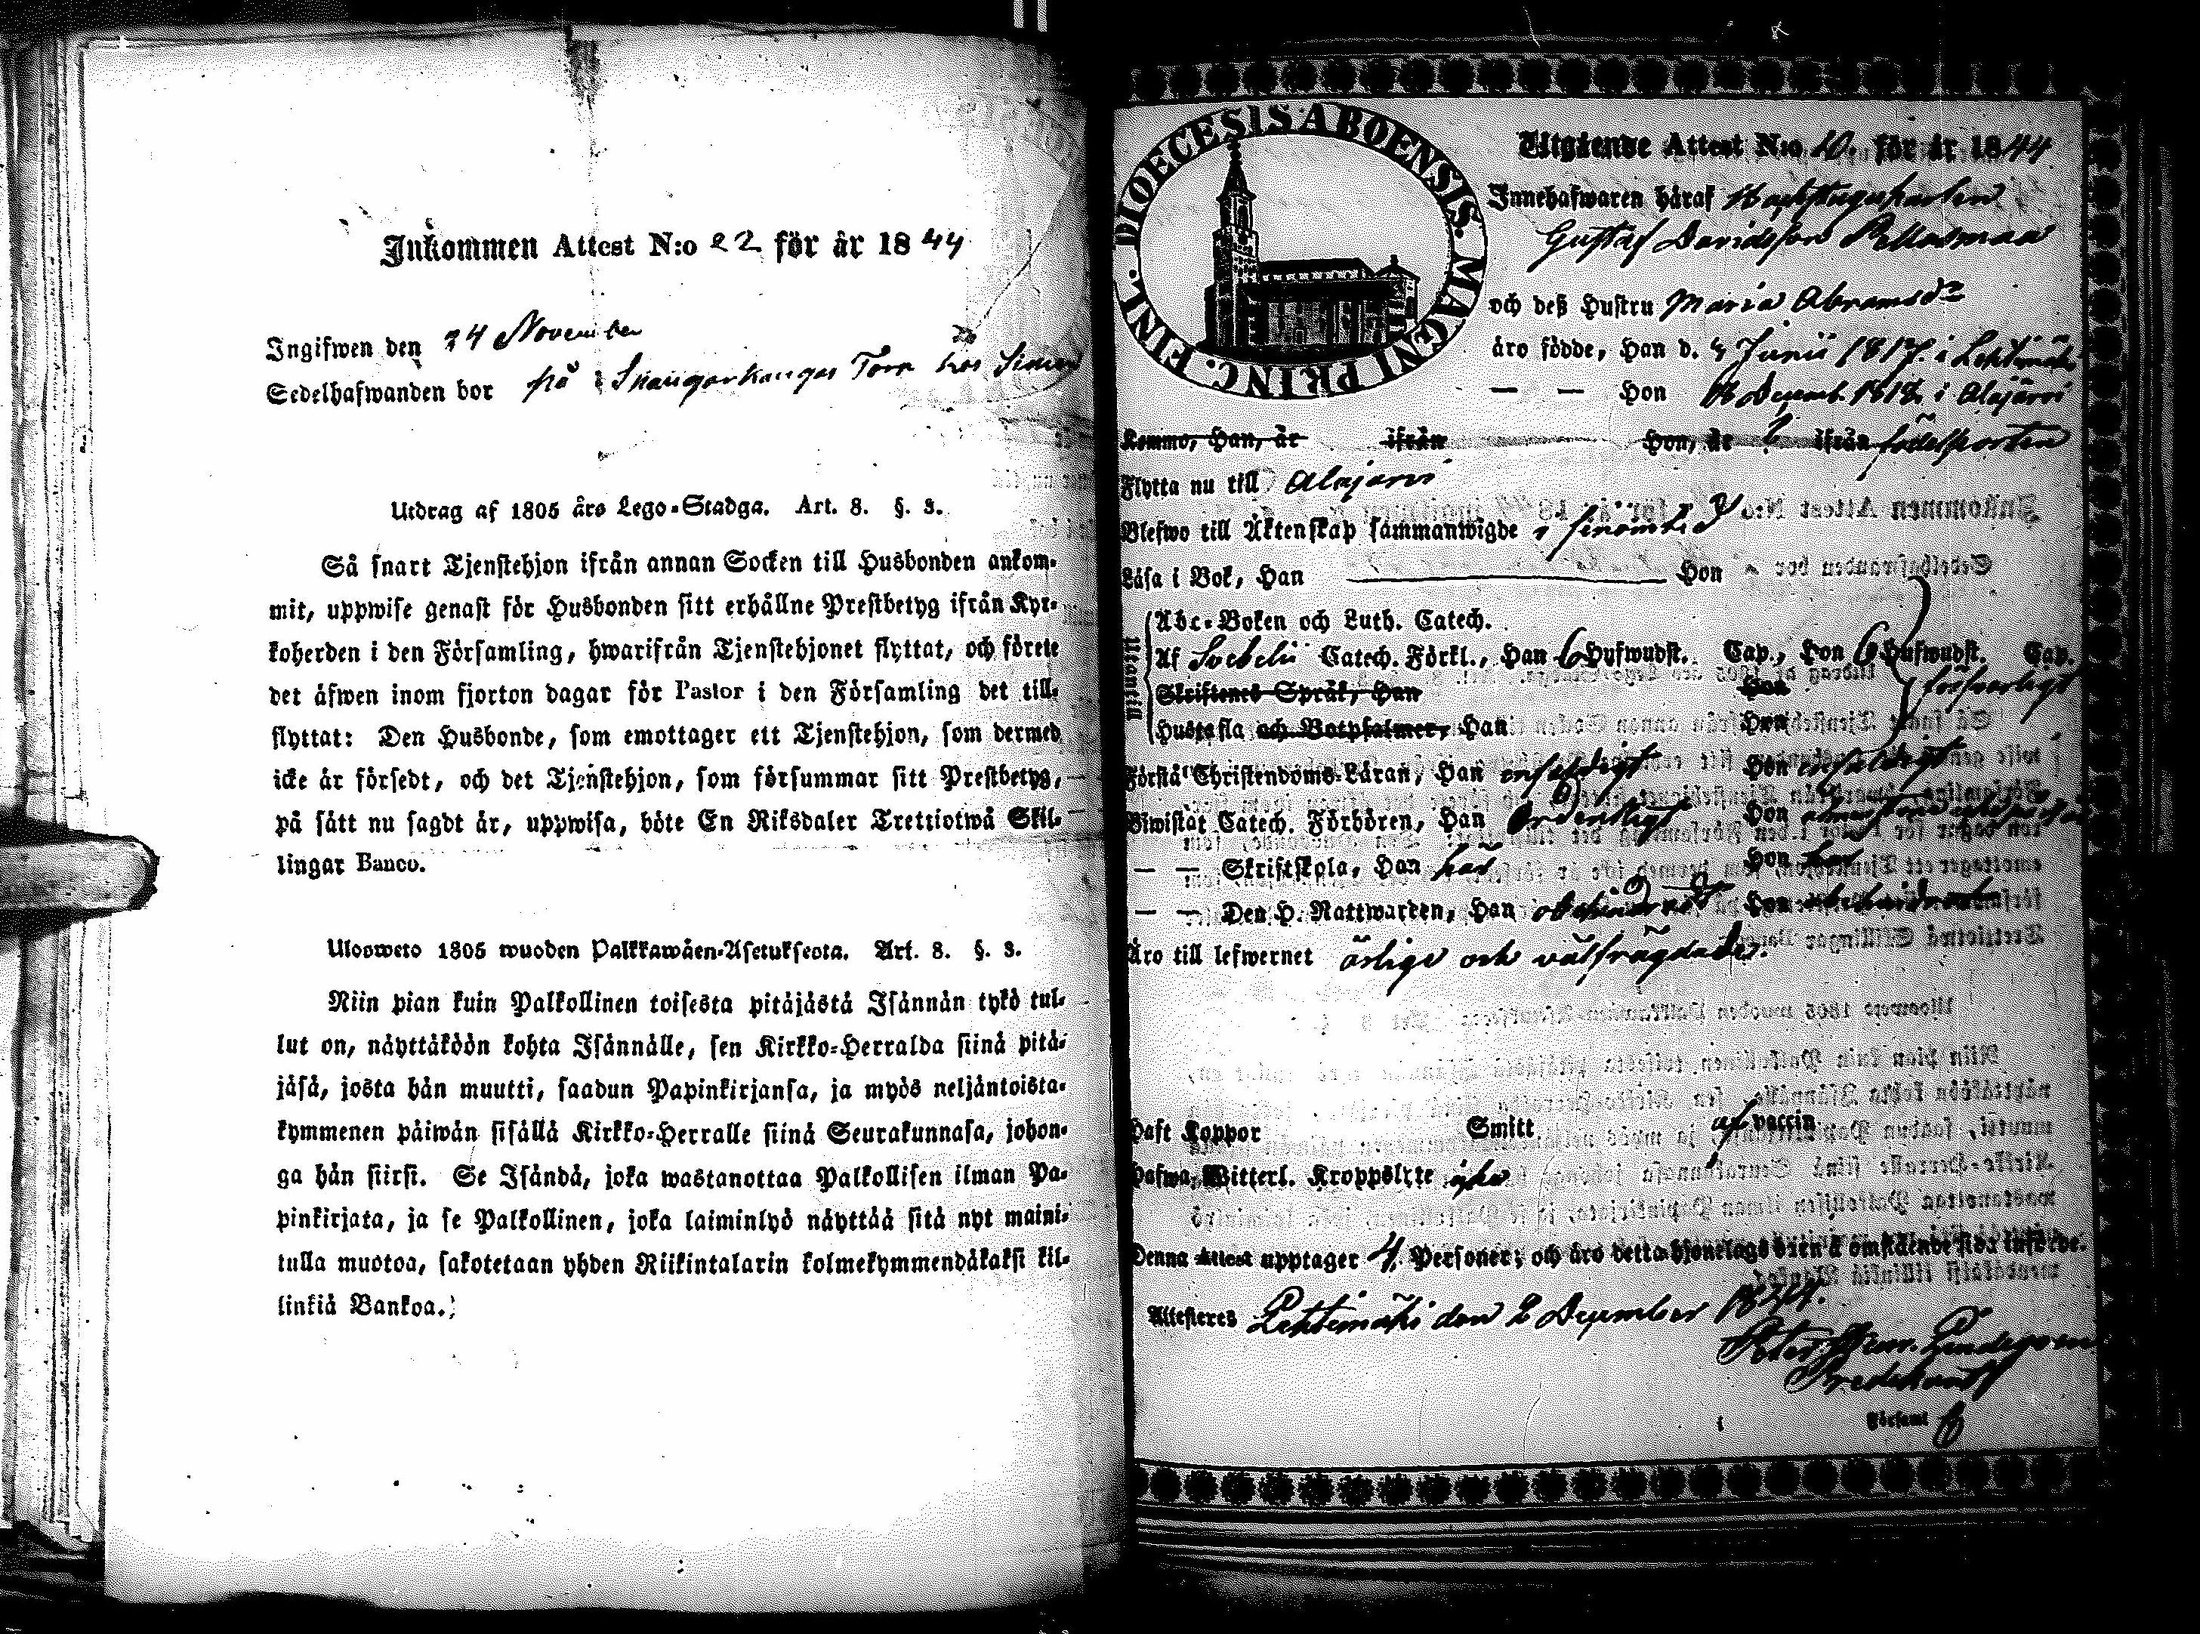 Inkommen Attest N:o 22 för år 1844
Ingifwen den 24 November
Sedelhafwanden bor på Torp hos
Utdrag af 1805 års Lego-Stadga. Art. 8. §. 3.
Så snart Tjenstehjon ifrån annan Socken till Husbonden ankom-
mit, uppwise genast för Husbonden sitt erhållne Prestbetyg ifrån Kyr-
koherden i den Församling, hwarifrån Tjenstehjonet flyttat, och förete
det äfwen inom fjorton dagar för Pastor i den Församling det till-
flyttat: Den Husbonde, som emottager ett Tjenstehjon, som dermed
icke är försedt, och det Tjenstehjon, som försummar sitt Prestbetyg,
på sätt nu sagdt är, uppwisa, böte En Riksdaler Trettiotwå Skil-
lingar Banco.
Ulosweto 1805 wuoden Palkkawäen-Asetuksesta. Art. 8. §. 3.
Niin pian kuin Palkollinen toisesta pitäjästä Isännän tykö tul-
lut on, näyttäköön kohta Isännälle, sen Kirkko-Herralda siinä pitä-
jäsä, josta hän muutti, saadun Papinkirjansa, ja myös neljäntoista-
kymmenen päiwän sisällä Kirkko-Herralle siinä Seurakunnasa, johon-
ga hän siirsi. Se Isändä, joka wastanottaa Palkollisen ilman Pa-
pinkirjata, ja se Palkollinen, joka laiminlyö näyttää sitä nyt maini-
tulla muotoa, sakotetaan yhden Riikintalarin kolmekymmendäkaksi kil-
linkiä Bankoa.
DIOECESIS ABOENSIS. MAGNI PRINC. FINL.
Utgående Attest N:o 10. för år 1844
Innehafwaren häraf
Gustaf Davidsson Pellasmaa
och deß Hustru Maria Abramsdr
äro födde, Han d. 4 Junii 1817. i Lehtimäki
— — Hon 18 Decemb. 1818. i Alajärvi
Kommo, Han, år ifrån Hon, år ifrån
Flytta nu till Alajärvi
Blefwo till Äktenskap sammanwigde
Läsa i Bok, Han Hon
Utantill
Abc-Boken och Luth. Catech.
Af Svebelii Catech. Förkl., Han 6 Hufwudst. Cap., Hon 6 Hufwudst. Cap.
Skriftenes Språk, Han Hon försvarligt
Hustafla och Botpsalmer, Han Hon
Förstå Christendoms-Läran, Han enfaldigt Hon enfaldigt
Biwistat Catech. Förhören, Han ordentligt Hon
— — Skriftskola, Han har Hon har
— — Den H. Nattwarden, Han obehindradt Hon obehindradt
Äro till lefwernet ärlige och välfrägdade.
Haft Koppor Smitt af vaccin
Hafwa Witterl. Kroppslyte icke
Denna Attest upptager 4 Personer; och äro detta hjonelags barn å omstående sida införde.
Attesteras Lehtimäki den 2 December 1844.
Predikant
i Församl